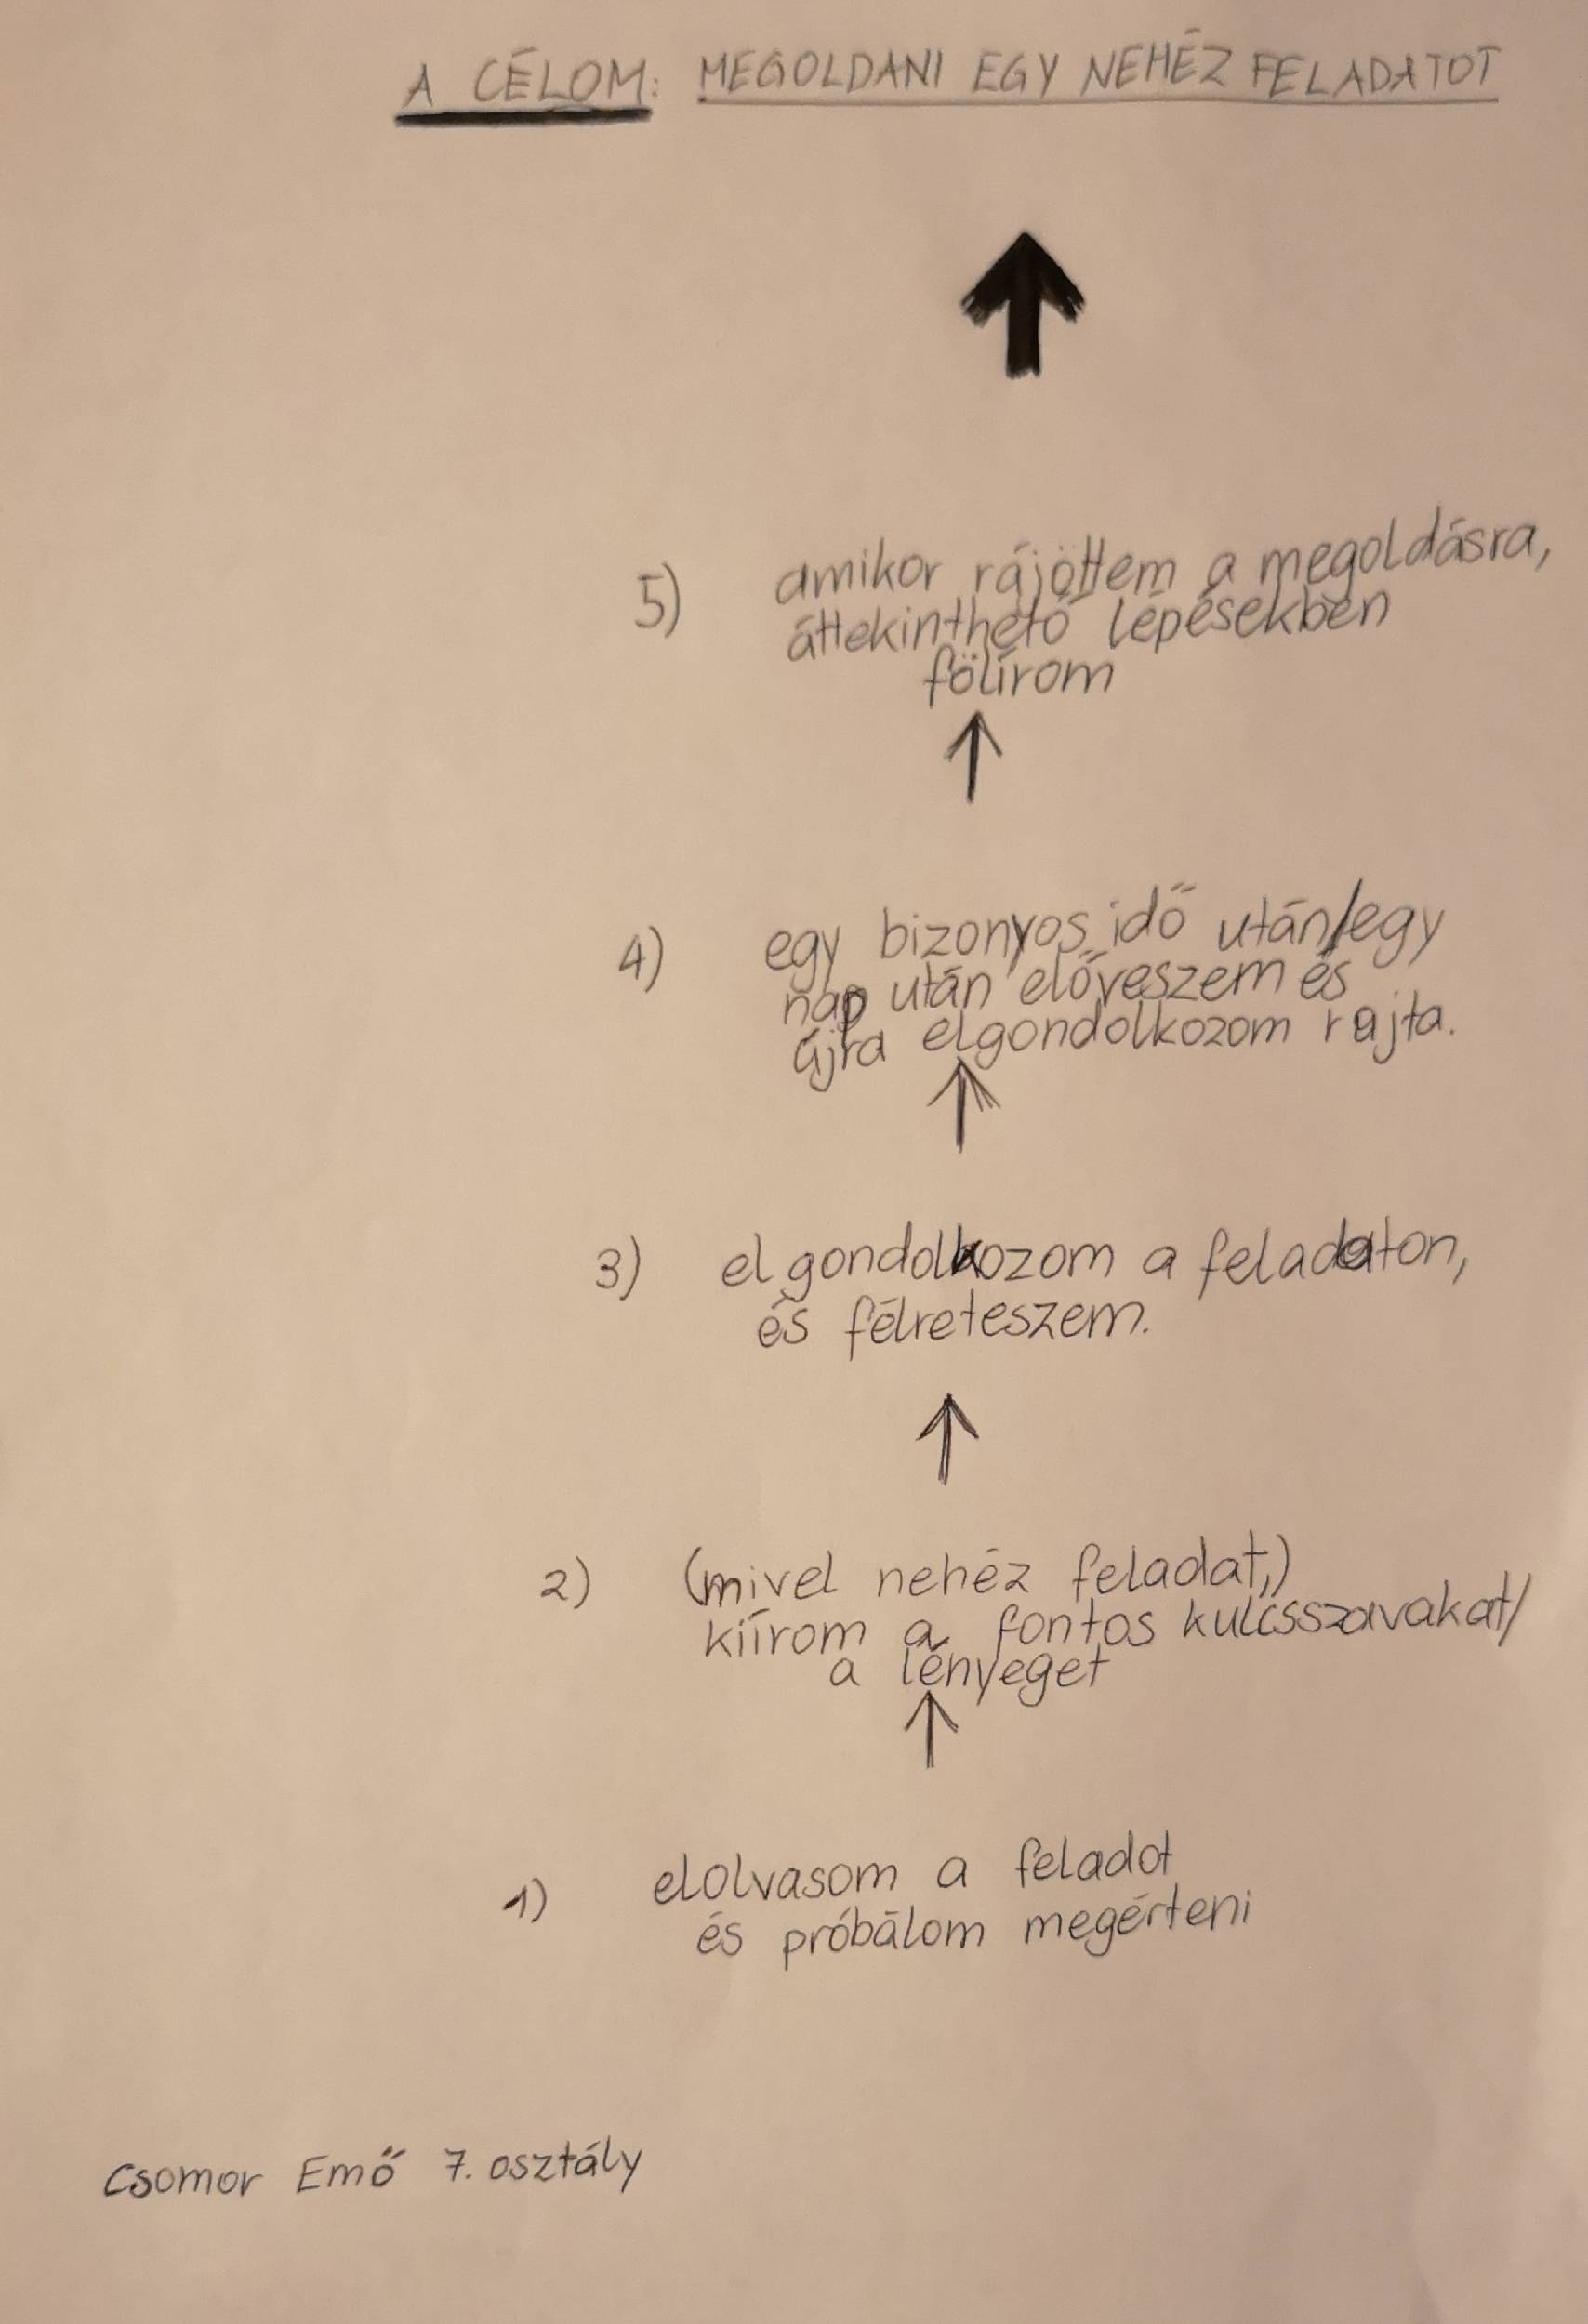 A CÉLOM: MEGOLDANI EGY NEHÉZ FELADATOT
5) amikor rájöttem a megoldásra,
áttekinthető lépésekben
fölírom
4) egy bizonyos idő után/egy
nap után előveszem és
újra elgondolkozom rajta.
3) elgondolkozom a feladaton,
és félreteszem.
2) (mivel nehéz feladat,)
kiírom a fontos kulcsszavakat/
a lényeget
1) elolvasom a feladot
és próbálom megérteni
Csomor Emő 7. osztály